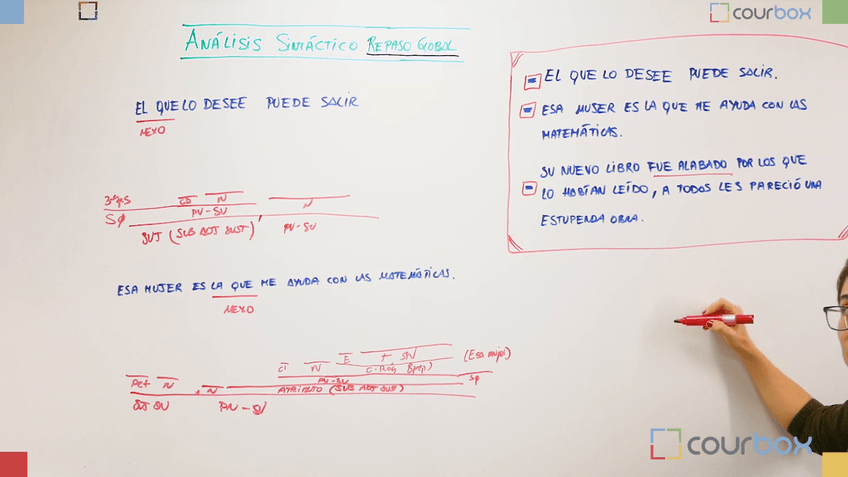 courbox
ANÁLISIS SINTÁCTICO REPASO GLOBAL
EL QUE LO DESEE PUEDE SALIR
NEXO
3ªps CD N N
SØ PV-SV
SUJ (SUB ADJ SUST) PV-SV
ESA MUJER ES LA QUE ME AYUDA CON LAS MATEMÁTICAS.
NEXO
CI N E T SN (Esa mujer)
C-Reg (prep)
PV-SV SØ
Det N N ATRIBUTO (SUB ADJ SUST)
PV-SV
EL QUE LO DESEE PUEDE SALIR.
ESA MUJER ES LA QUE ME AYUDA CON LAS
MATEMÁTICAS.
SU NUEVO LIBRO FUE ALABADO POR LOS QUE
LO HABÍAN LEÍDO, A TODOS LES PARECIÓ UNA
ESTUPENDA OBRA.
courbox